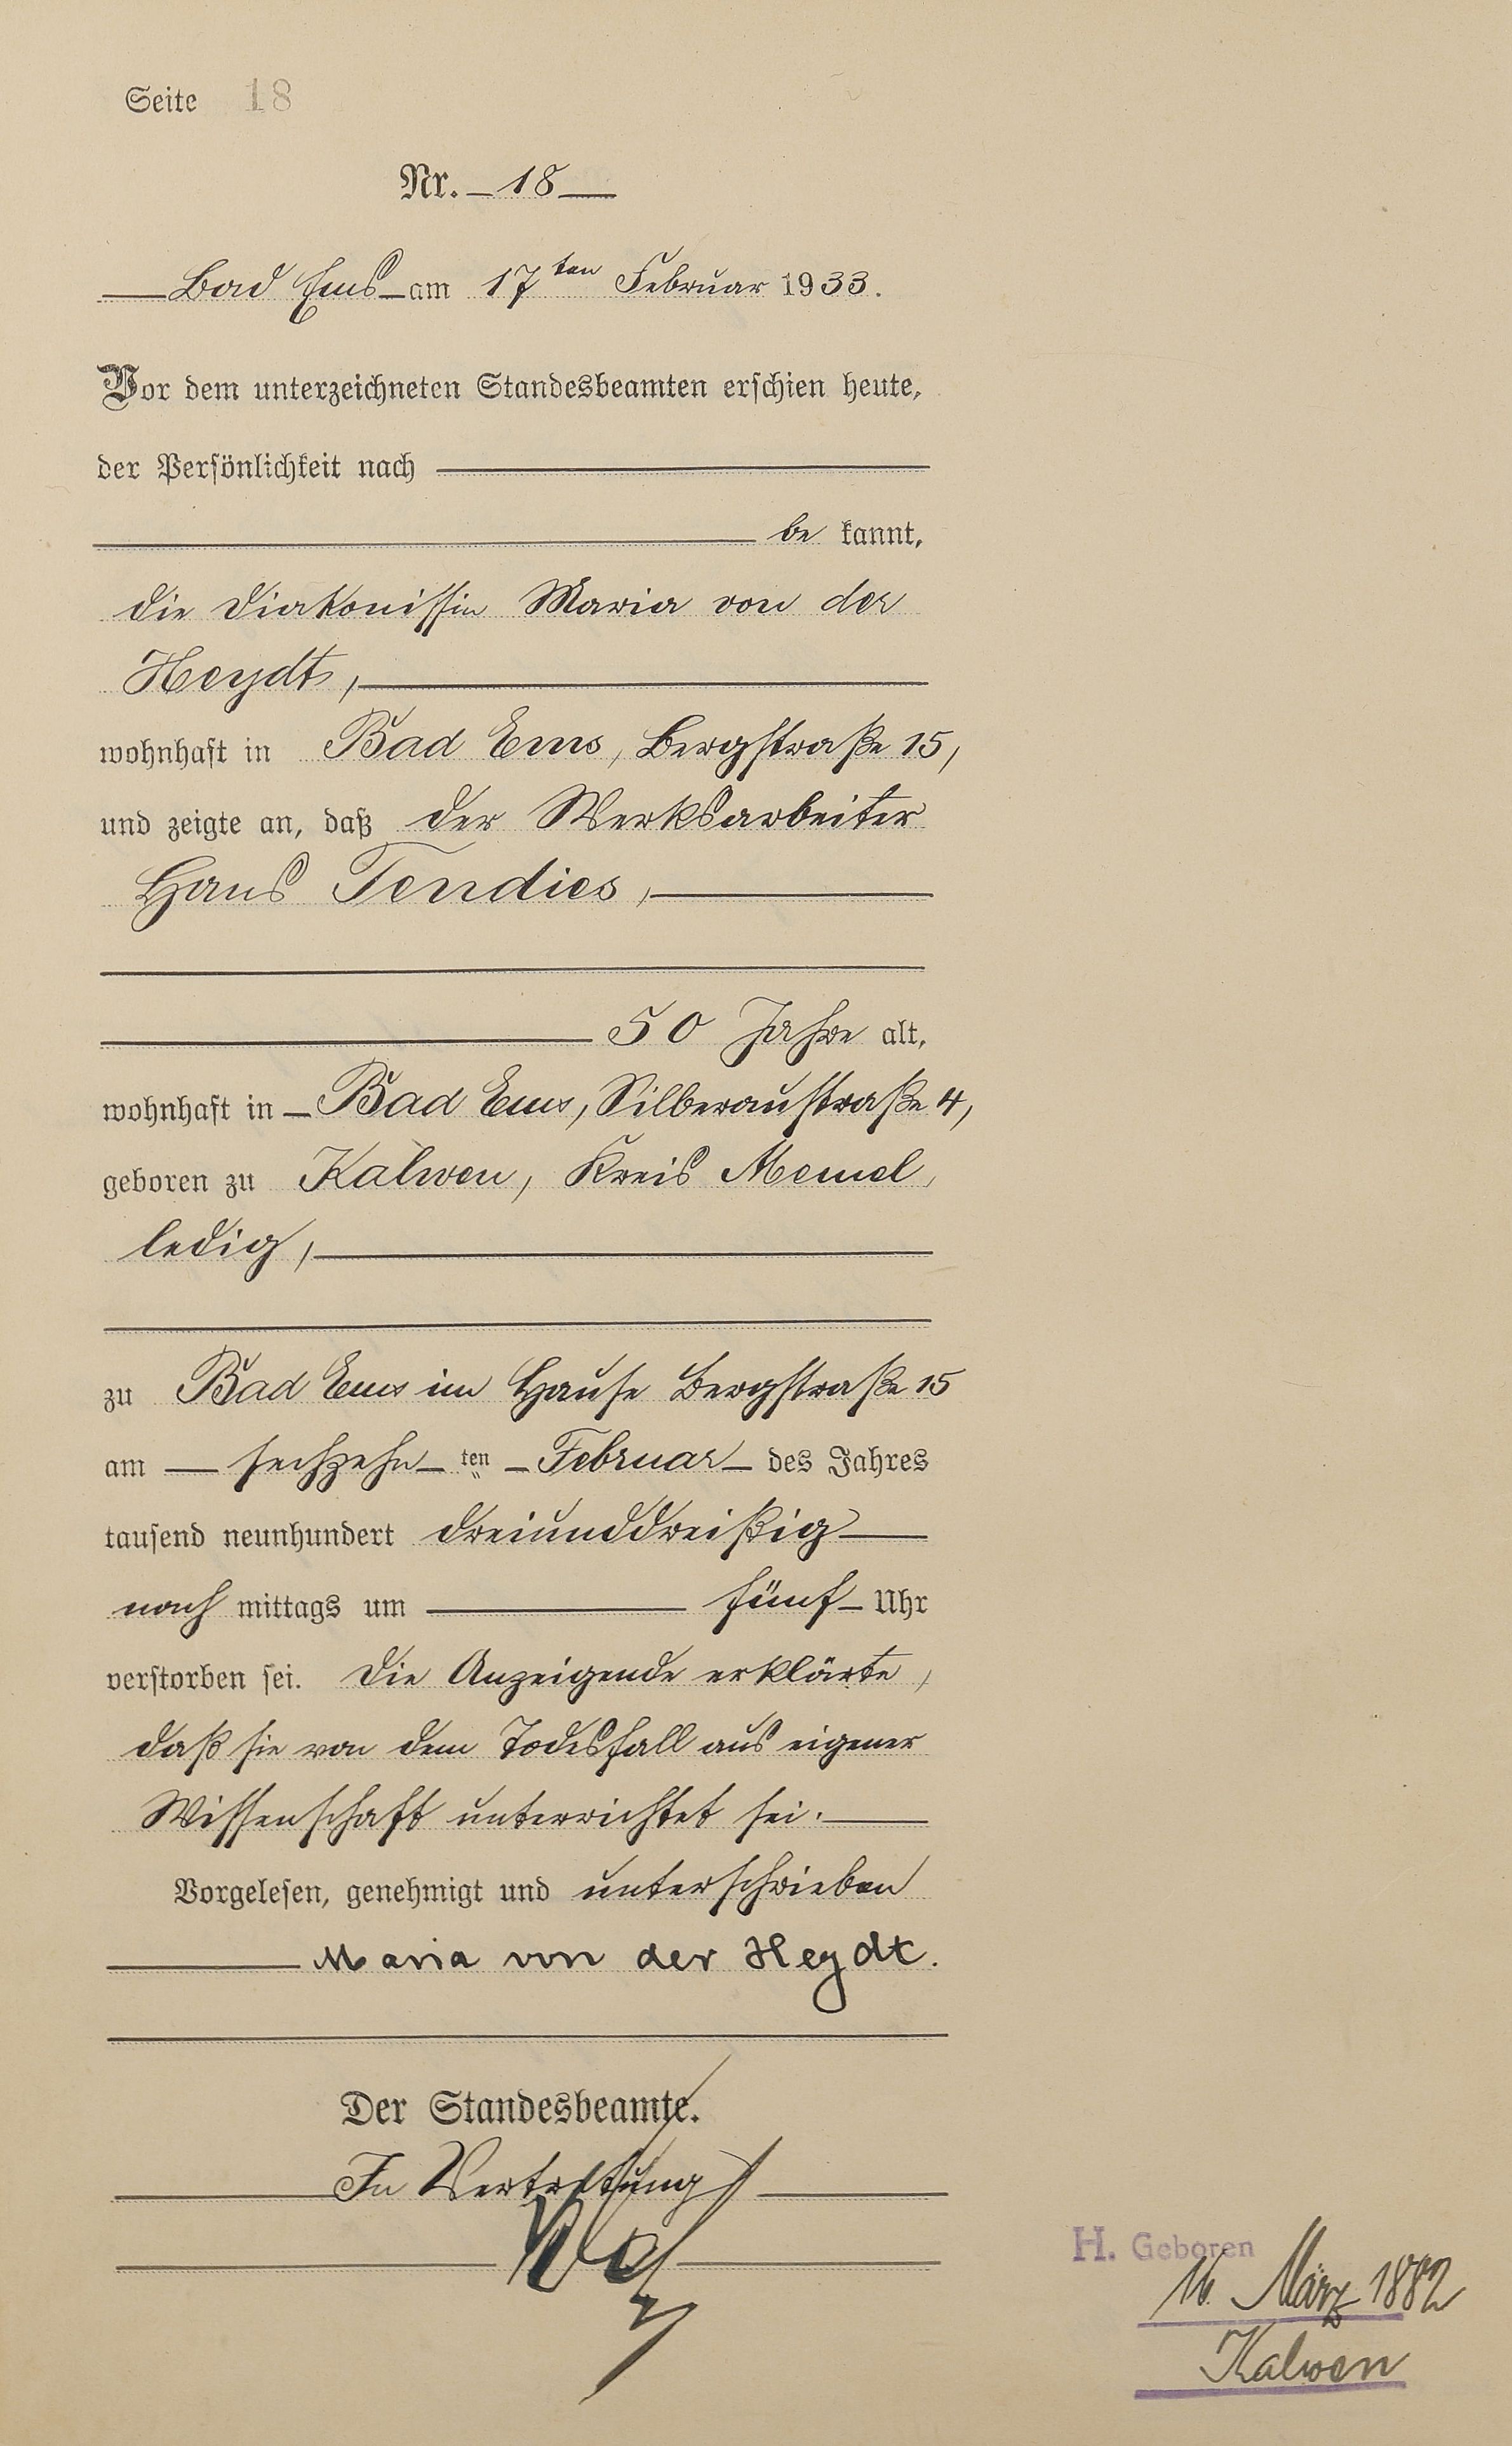 Seite 18
Nr. 18
Bad Ems am 17ten Februar 1933.
Vor dem unterzeichneten Standesbeamten erschien heute,
der Persönlichkeit nach
be kannt,
die Diakonissin Maria von der
Heydt,
wohnhaft in Bad Ems, Bergstraße 15,
und zeigte an, daß der Werksarbeiter
Hans Tendies,
50 Jahre alt,
wohnhaft in Bad Ems, Silberaustraße 4,
geboren zu Kalwen, Kreis Memel,
ledig,
zu Bad Ems im Hause Bergstraße 15
am sechzehn ten Februar des Jahres
tausend neunhundert dreiunddreißig
nach mittags um fünf Uhr
verstorben sei. Die Anzeigende erklärte,
daß sie von dem Todesfall aus eigener
Wissenschaft unterrichtet sei.
Vorgelesen, genehmigt und unterschrieben
Maria von der Heydt.
Der Standesbeamte.
In Vertretung
H. Geboren
16. März 1882
Kalwen